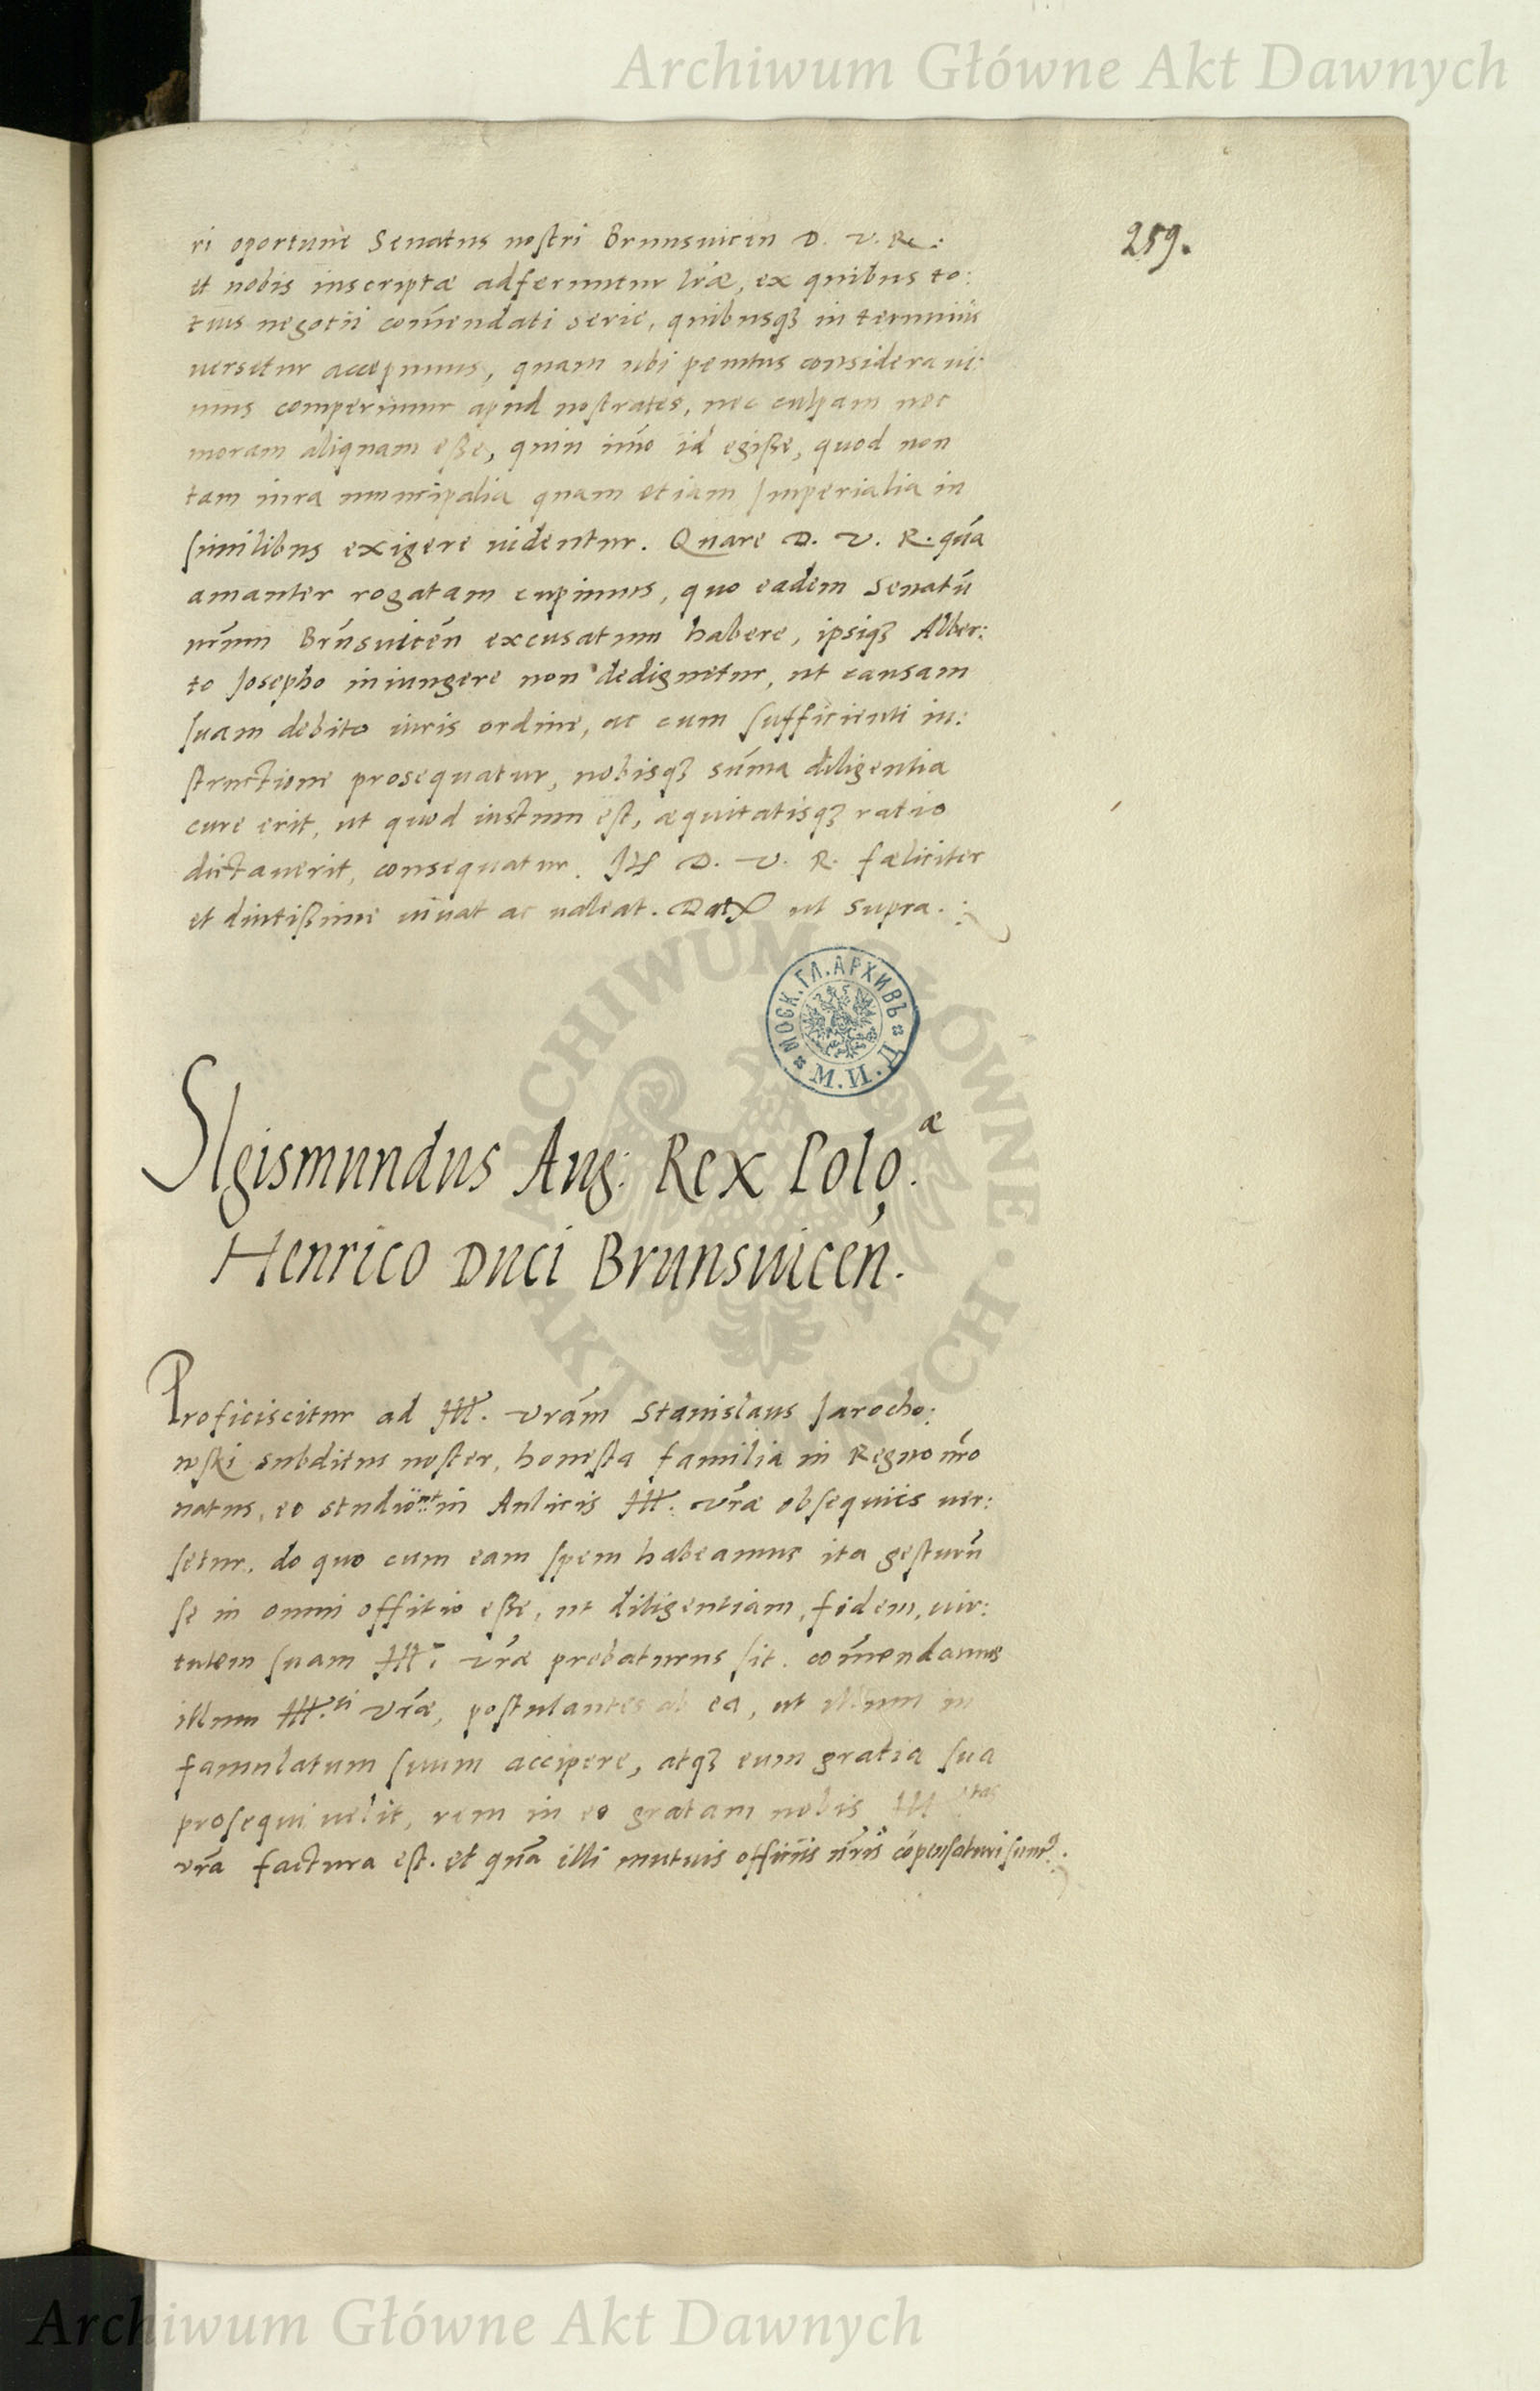 Archiwum Główne Akt Dawnych
259.
ri oportune Senatus nostri Brunsuicen D. V. R.:
et nobis inscriptæ adferuntur lr̃æ, ex quibus to:
tius negotii com̃endati serie, quibusqꝫ in terminis
uersetur accepimus, quam ubi penitus consideraui:
mus comperimur apud nostrates, nec culpam nec
moram aliquam eße, quin im̃o id egiße, quod non
tam iura municipalia quam etiam Imperialia in
similibus exigere uidentur. Quare D. V. R. quã
amanter rogatam cupimus, quo eadem Senatũ
nr̃um Brũsuicẽn excusatum habere, ipsiqꝫ Alber:
to Josepho iniungere non dedignetur, ut causam
suam debito iuris ordine, ac cum sufficienti in:
structione prosequatur, nobisqꝫ sũma diligentia
cure erit, ut quod iustum est, æquitatisqꝫ ratio
dictauerit, consequatur. D. V. R. fæliciter
et diutißime uiuat ac ualeat. Dat ut supra.
МОСК. ГЛ. АРХИВЪ
М. И. Д.
ARCHIWUM GŁÓWNE AKT DAWNYCH
SIgismundus Aug: Rex Polo.æ
Henrico Duci Brunsuicẽn.
Proficiscitur ad Ill. Vr̃am Stanislaus Jarocho:
wski subditus noster, honesta familia in Regno nr̃o
natus, eo studio ut in Aulicis Ill. Vr̃æ obsequiis uer:
setur. do quo cum eam spem habeamus ita gesturũ
se in omni offitio eße, ut diligentiam, fidem, uir:
tutem suam Ill. Vr̃æ probaturus sit. com̃endamus
illum Ill.ti Vr̃æ, postulantes ab ea, ut illum in
famulatum suum accipere, atqꝫ eum gratia sua
prosequi uelit, rem in eo gratam nobis Ill tas
vr̃a factura est. et quã illi mutuis officiis nr̃is cõpensaturi sumꝰ.
Archiwum Główne Akt Dawnych